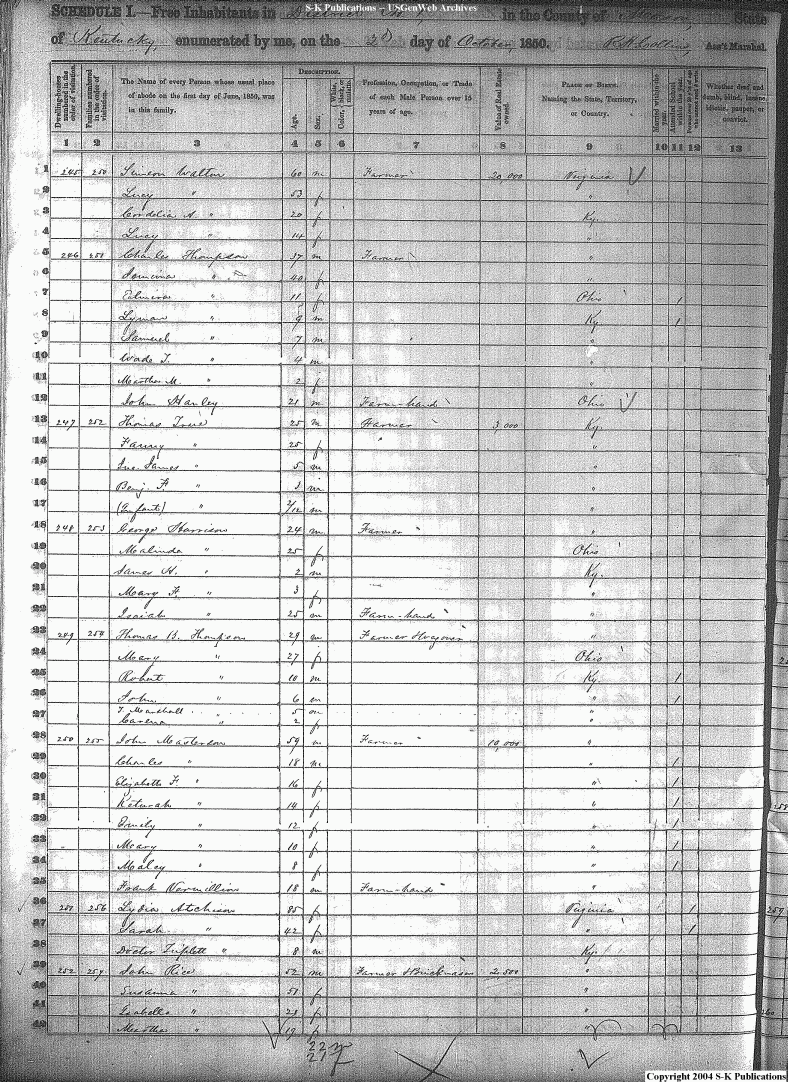 S-K Publications – USGenWeb Archives
SCHEDULE I.—Free Inhabitants in District in the County of Mason State
of Kentucky, enumerated by me, on the 2d day of October, 1850. Ass't Marshal.
Dwelling-houses numbered in the order of visitation.
Families numbered in the order of visitation.
The Name of every Person whose usual place of abode on the first day of June, 1850, was in this family.
DESCRIPTION.
Age.
Sex.
Color, White, black, or mulatto.
Profession, Occupation, or Trade of each Male Person over 15 years of age.
Value of Real Estate owned.
PLACE OF BIRTH. Naming the State, Territory, or Country.
Married within the year.
Attended School within the year.
Whether deaf and dumb, blind, insane, idiotic, pauper, or convict.
1 2 3 4 5 6 7 8 9 10 11 12 13
1 245 250 Simeon Walton 60 m Farmer 20,000 Virginia
2 Lucy " 53 f "
3 Cordelia A. " 20 f Ky
4 Lucy " 14 f "
5 246 251 Charles Thompson 37 m Farmer "
6 Jemima " 40 f "
7 Elmira " 11 f Ohio 1
8 Lyman " 9 m Ky 1
9 Samuel " 7 m "
10 Wade T. " 4 m "
11 Martha M. " 2 f "
12 John Stanley 21 m Farm-hand Ohio
13 247 252 Thomas True 25 m Farmer 3,000 Ky.
14 Fanny " 25 f " "
15 James " 5 m "
16 Benj F " 3 m "
17 (Infant) " 2/12 m "
18 248 253 George Harrison 24 m Farmer "
19 Malinda " 25 f Ohio
20 James H. " 2 m Ky.
21 Mary F. " 3 f "
22 Isaiah " 25 m Farm-hand "
23 249 254 Thomas B. Thompson 29 m Farmer "
24 Mary " 27 f Ohio
25 Robert " 10 m Ky. 1
26 John " 6 m " 1
27 T. Marshall " 5 m "
Carena " 2 f "
28 250 255 John Masterson 59 m Farmer 10,000 "
29 Charles " 18 m " 1
30 Elizabeth F. " 16 f " 1
31 Keturah " 14 f " 1
32 Emily " 12 f " 1
33 Mary " 10 f " 1
34 Maley " 8 f " 1
35 Frank Vermillion 18 m Farm-hand "
36 251 256 Lydia Atchison 85 f Virginia 1
37 Sarah " 42 f " 1
38 Doctor Triplett " 8 m Ky.
39 252 257 John Rice 52 m Farmer & Brickmason 2,500 "
40 Susanna " 51 f "
41 Isabella " 21 f "
42 Martha " 19 f "
22 m
21 f
Copyright 2004 S-K Publications